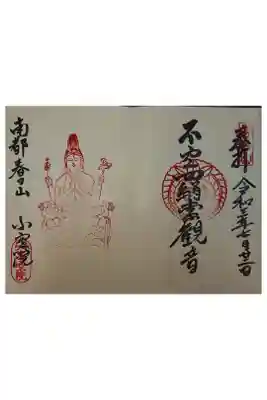 奉拝 令和 年七月廿 日
不空羂索觀音
南都春日山 不空院